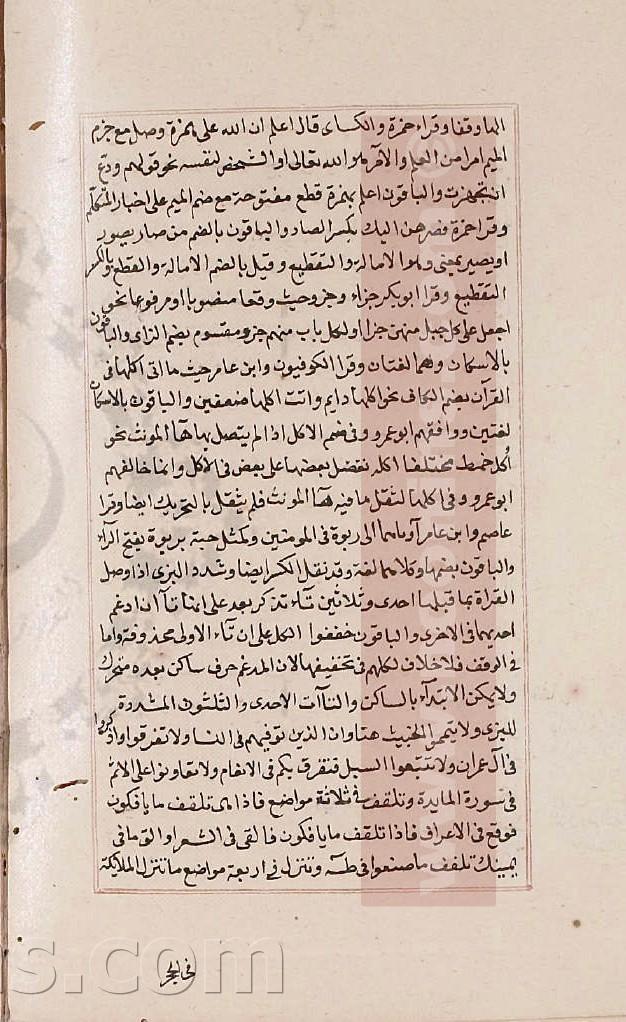 الها وقفا وقراء حمزة والكسائ قال اعلم ان الله على بهمزة وصل مع جزم
الميم امرا من العلم والآمر هو الله تعالى او الشخص لنفسه نحو قولهم ودع
ان تجهزت والباقون اعلم بهمزة قطع مفتوحة مع ضم الميم على اخبار المتكلم
وقرا حمزة فصرهن اليك بكسر الصاد والباقون بالضم من صار يصور
او يصير بمعنى وهو الامالة والتقطيع وقيل بالضم الامالة والقطع وبالكسر
التقطيع وقرا ابو بكر جزاء وجزو حيث وقعا منصوبا او مرفوعا نحو
اجعل على كل جبل منهن جزا ولكل باب منهم جزو مقسوم بضم الزاى والباقون
بالاسكان وهما لغتان وقرا الكوفيون وابن عامر حيث ما اتى اكلها فى
القرآن بضم الكاف نحو اكلها دايم واتت اكلها ضعفين والباقون بالاسكان
لغتين ووافقهم ابو عمرو فى ضم الاكل اذا لم يتصل بها هآ المونث نحو
أكل خمط مختلفا اكله نفضل بعضها على بعض فى الاكل وانما خالفهم
ابو عمرو فى اكلها لثقل ما فيه هآ المونث فلم يثقل بالتحريك ايضا وقرا
عاصم وابن عامر آويناهما الى ربوة فى المومنين وكمثل جبة بربوة بفتح الرآء
والباقون بضمها وكلاهما لغة وقد نقل الكسر ايضا وشدد البزى اذا وصل
القراة بما قبلها احدى وثلاثين تآء تذكر بعد على انها تآ ان ادغم
احديهما فى الاخرى والباقون خففوا الكل على ان تآء الاولى محذوفة واما
فى الوقف فلا خلاف لكلهم فى تخفيفها لان المدغم حرف ساكن بعده متحرك
ولا يمكن الابتدآء بالساكن والتاآت الاحدى والثلثون المشددة
للبزى ولا يتمموا الخبيث هنا وان الذين توفيهم فى النسا ولا تفرقوا واذكروا
فى آل عمران ولا تتبعوا السبل فتفرق بكم فى الانعام ولا تعاونوا على الاثم
فى سورة المايدة وتلقف فى ثلاثة مواضع فاذا هى تلقف ما يافكون
فوقع فى الاعراف فاذا تلقف ما يافكون فالقى فى الشعرا والق ما فى
يمينك تلقف ما صنعوا فى طه وتنزل فى اربعة مواضع ما تنزل الملايكة
فى الحجر
s.com